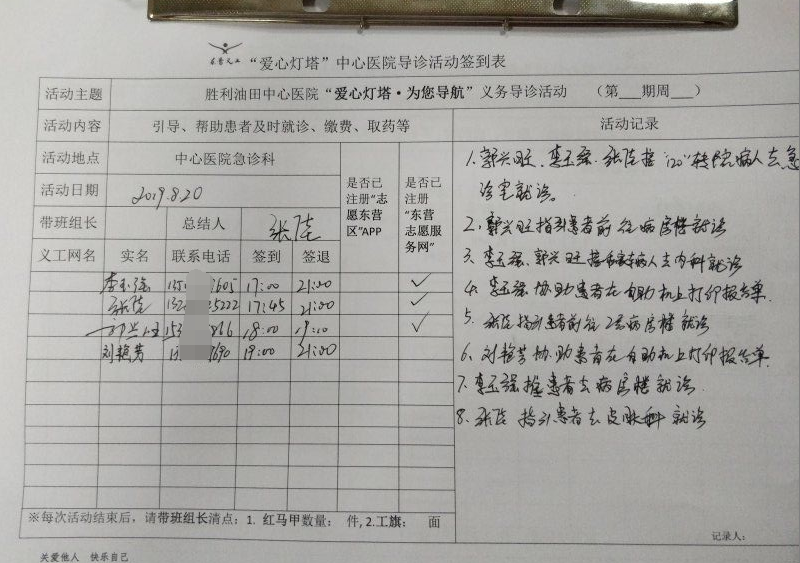 “爱心灯塔”中心医院导诊活动签到表
活动主题 胜利油田中心医院“爱心灯塔·为您导航”义务导诊活动 （第___期周___）
活动内容 引导、帮助患者及时就诊、缴费、取药等 活动记录
活动地点 中心医院急诊科
活动日期 2019.8.20
是否已注册“志愿东营区”APP
是否已注册“东营志愿服务网”
带班组长 总结人 张陆
义工网名 实名 联系电话 签到 签退
李玉强 17:00 21:00 ✓
张陆 5222 17:45 21:00 ✓
郭兴旺 18:00 ✓
刘艳芳 19:00 21:00
1.郭兴旺、李玉强、张陆接“120”转院病人去急
诊室就诊。
2.郭兴旺指引患者前往病房楼就诊
3.李玉强、郭兴旺接病人去内科就诊
4.李玉强协助患者在自助机上打印报告单.
5.张陆指引患者前往2号病房楼就诊
6.刘艳芳协助患者在自助机上打印报告单.
7.李玉强推患者去病房楼就诊.
8.张陆指引患者去皮肤科就诊
※每次活动结束后，请带班组长清点：1. 红马甲数量： 件, 2.工旗： 面
记录人:
关爱他人 快乐自己